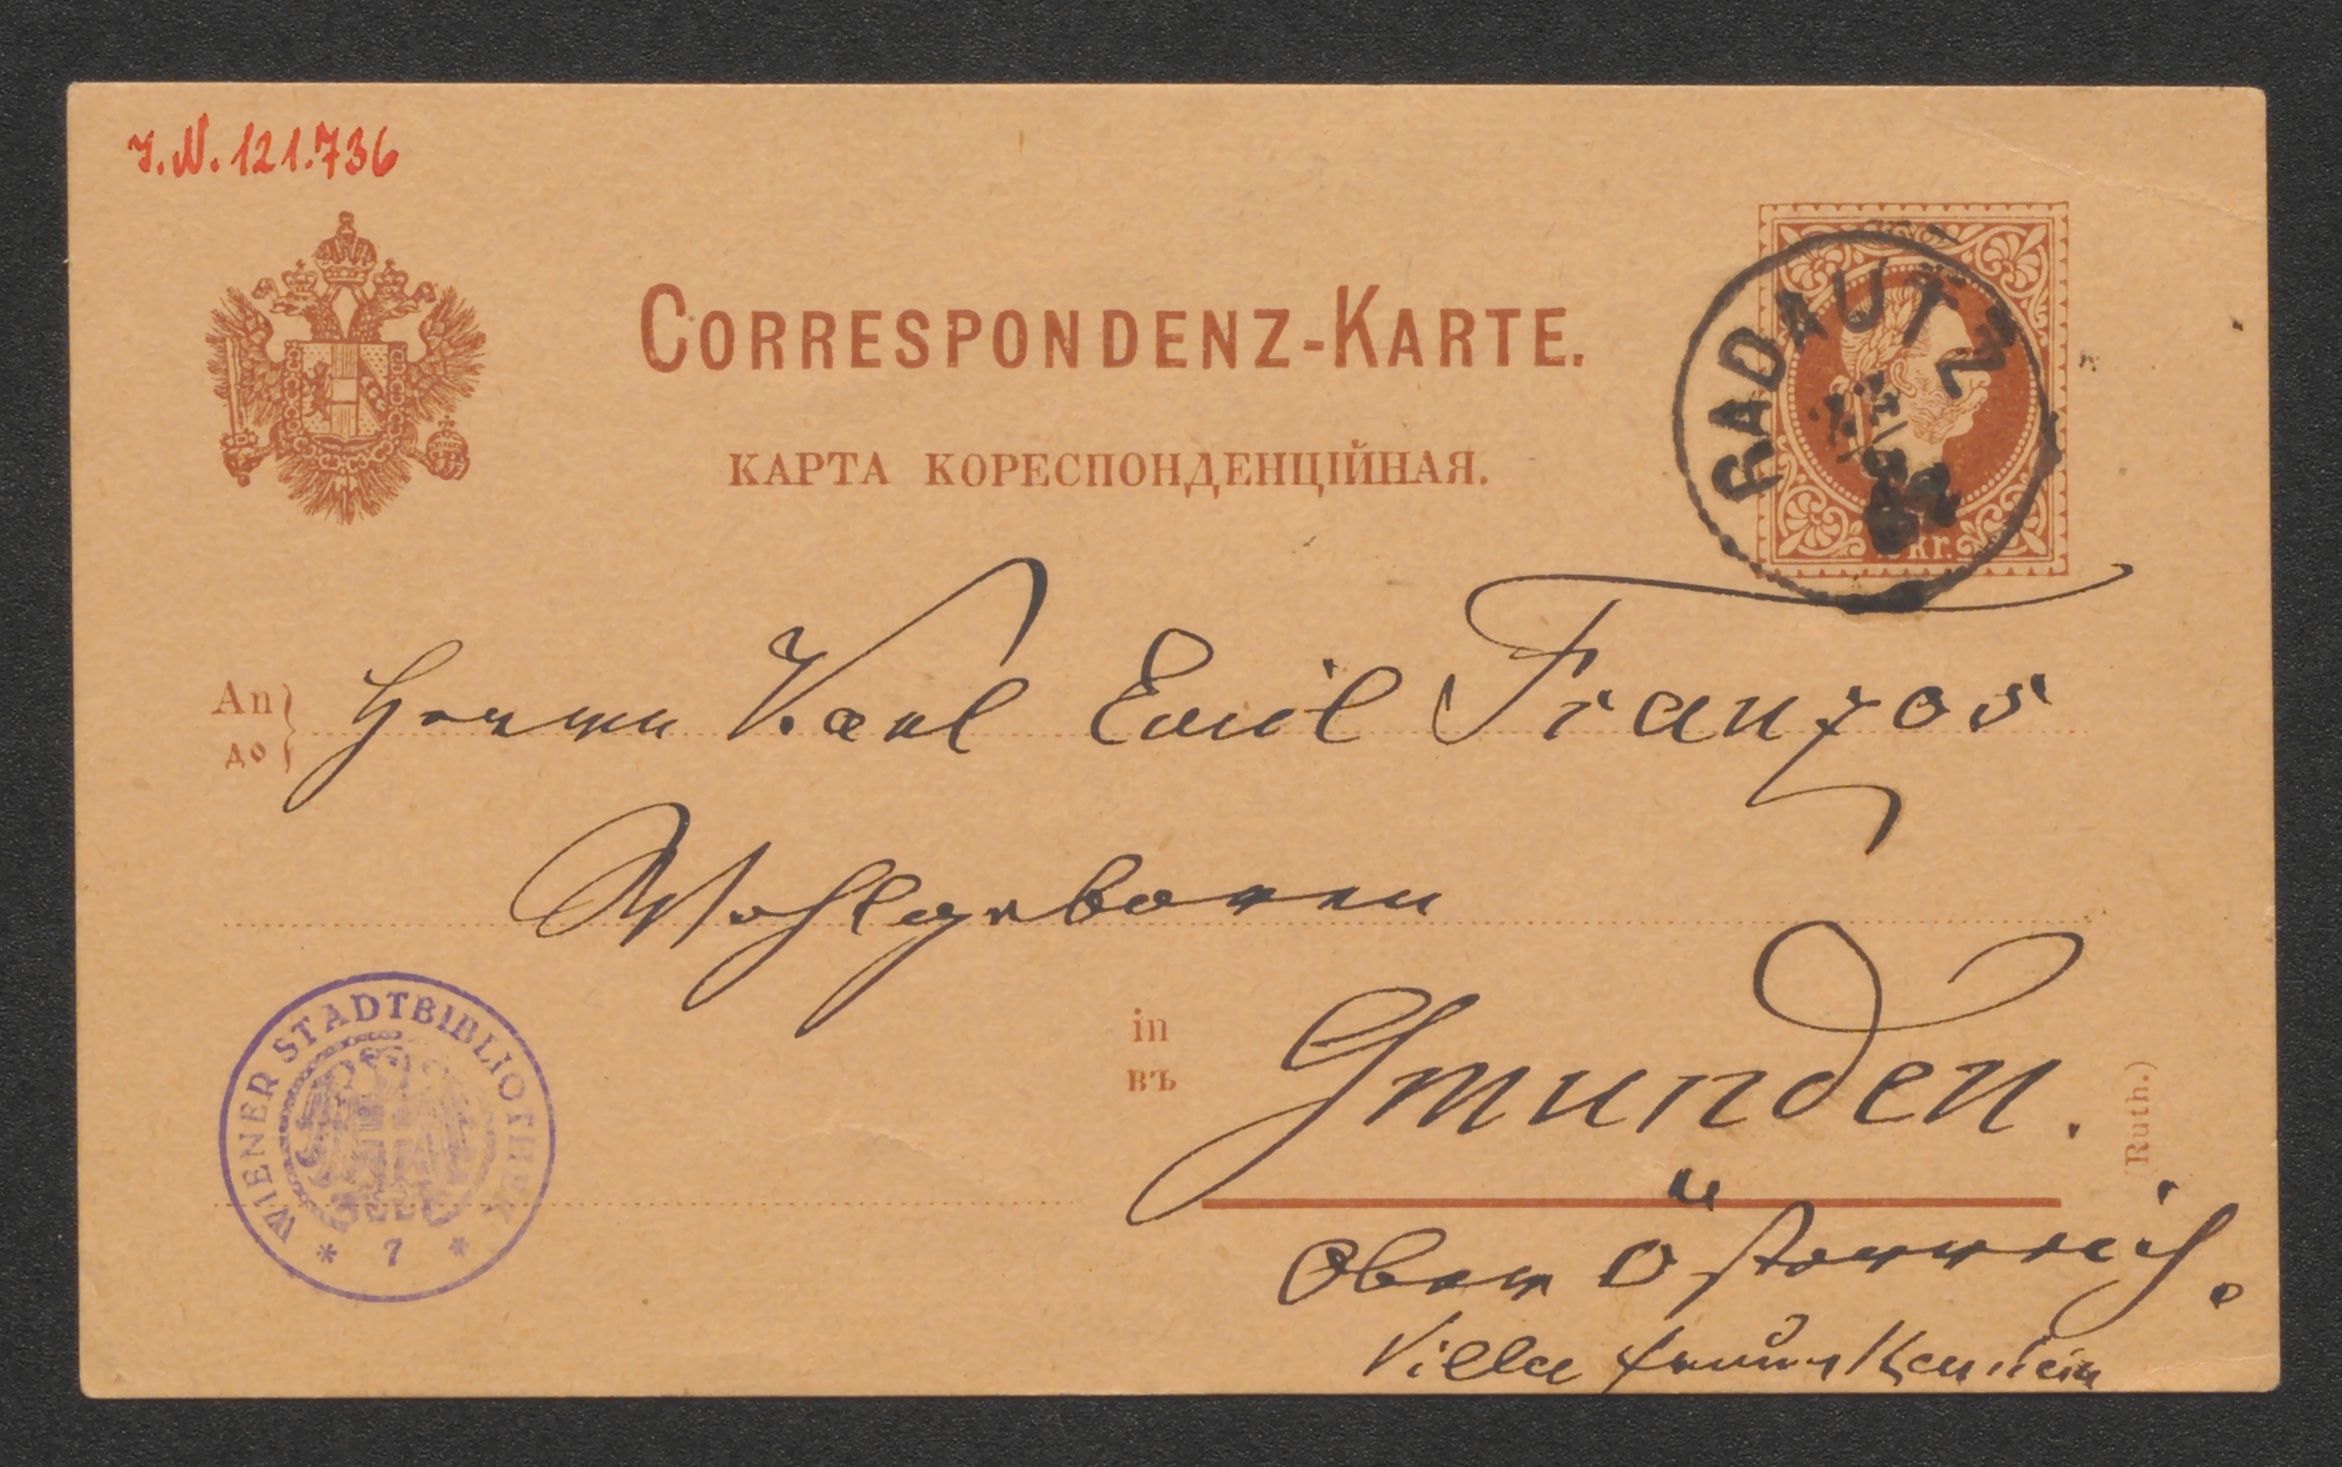 J.N. 121.736
CORRESPONDENZ-KARTE.
КАРТА КОРЕСПОНДЕНЦІЙНАЯ.
RADAUTZ
kr.
An
до
Herrn Karl Emil Franzos
Wohlgeboren
in
въ
Gmunden.
(Ruth.)
Ober Österreich.
Villa
WIENER STADTBIBLIOTHEK
* 7 *